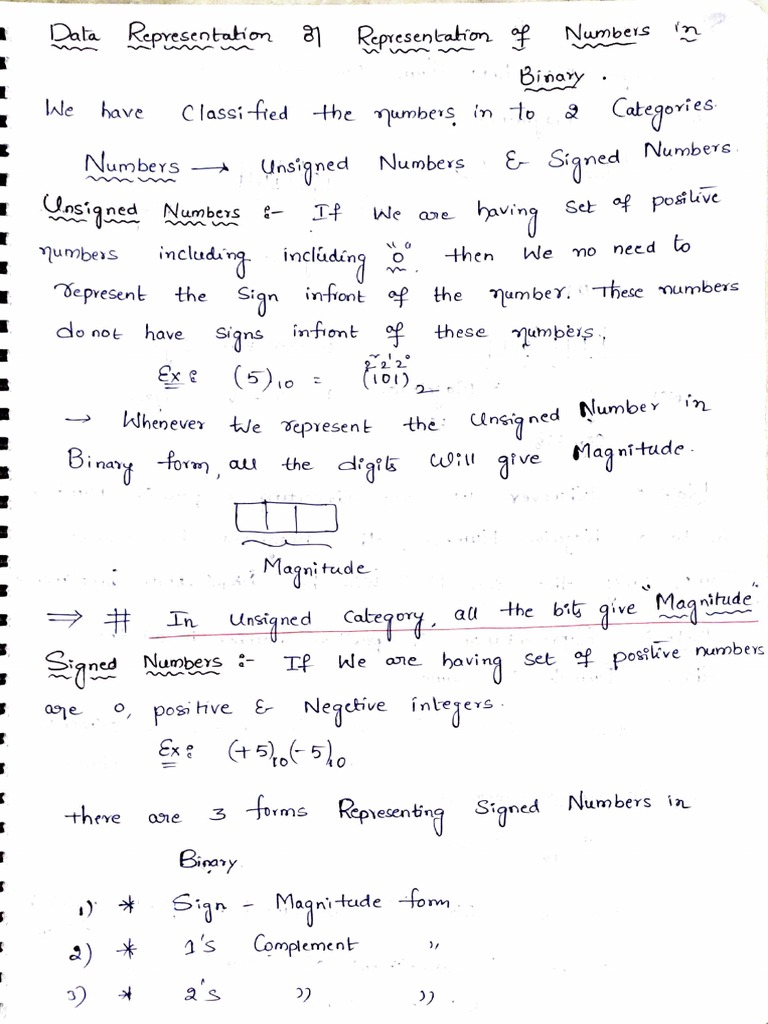 Data Representation or Representation of Numbers in
Binary.
We have Classified the numbers in to 2 Categories.
Numbers → Unsigned Numbers & Signed Numbers.
Unsigned Numbers :- If We are having set of positive
numbers including including "0" then We no need to
represent the Sign infront of the number. These numbers
do not have signs infront of these numbers.
2² 2¹ 2⁰
Ex : (5)₁₀ = (101)₂
→ Whenever We represent the Unsigned Number in
Binary form, all the digits Will give Magnitude.
Magnitude
⇒ # In Unsigned Category, all the bits give "Magnitude"
Signed Numbers :- If We are having set of positive numbers
are 0, positive & Negetive integers.
Ex : (+5)₁₀ (-5)₁₀
there are 3 forms Representing Signed Numbers in
Binary
1) * Sign - Magnitude form
2) * 1's Complement ,,
3) * 2's ,, ,,